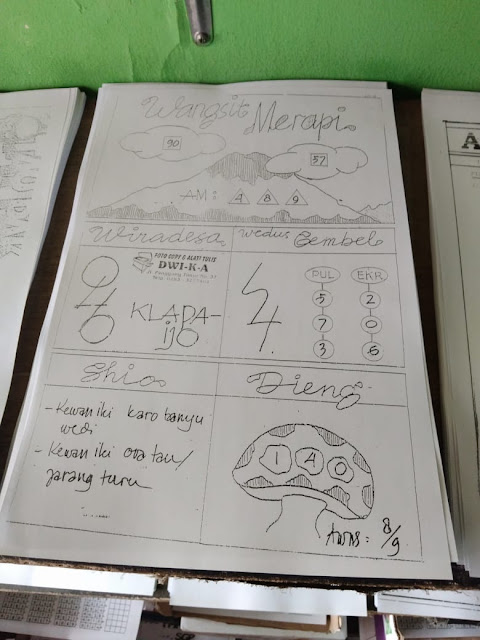 Wangsit Merapi
90
57
AM: 4 8 9
Wiradesa
FOTO COPY & ALAT TULIS
DWI-K-A
KLAPA-
ijo
Wedus Gembel
PUL EKR
5 2
7 0
3 6
Shio
- Kewan iki karo banyu
wedi
- Kewan iki ora tau/
jarang turu
Dieng
1 4 0
Awas: 8/9